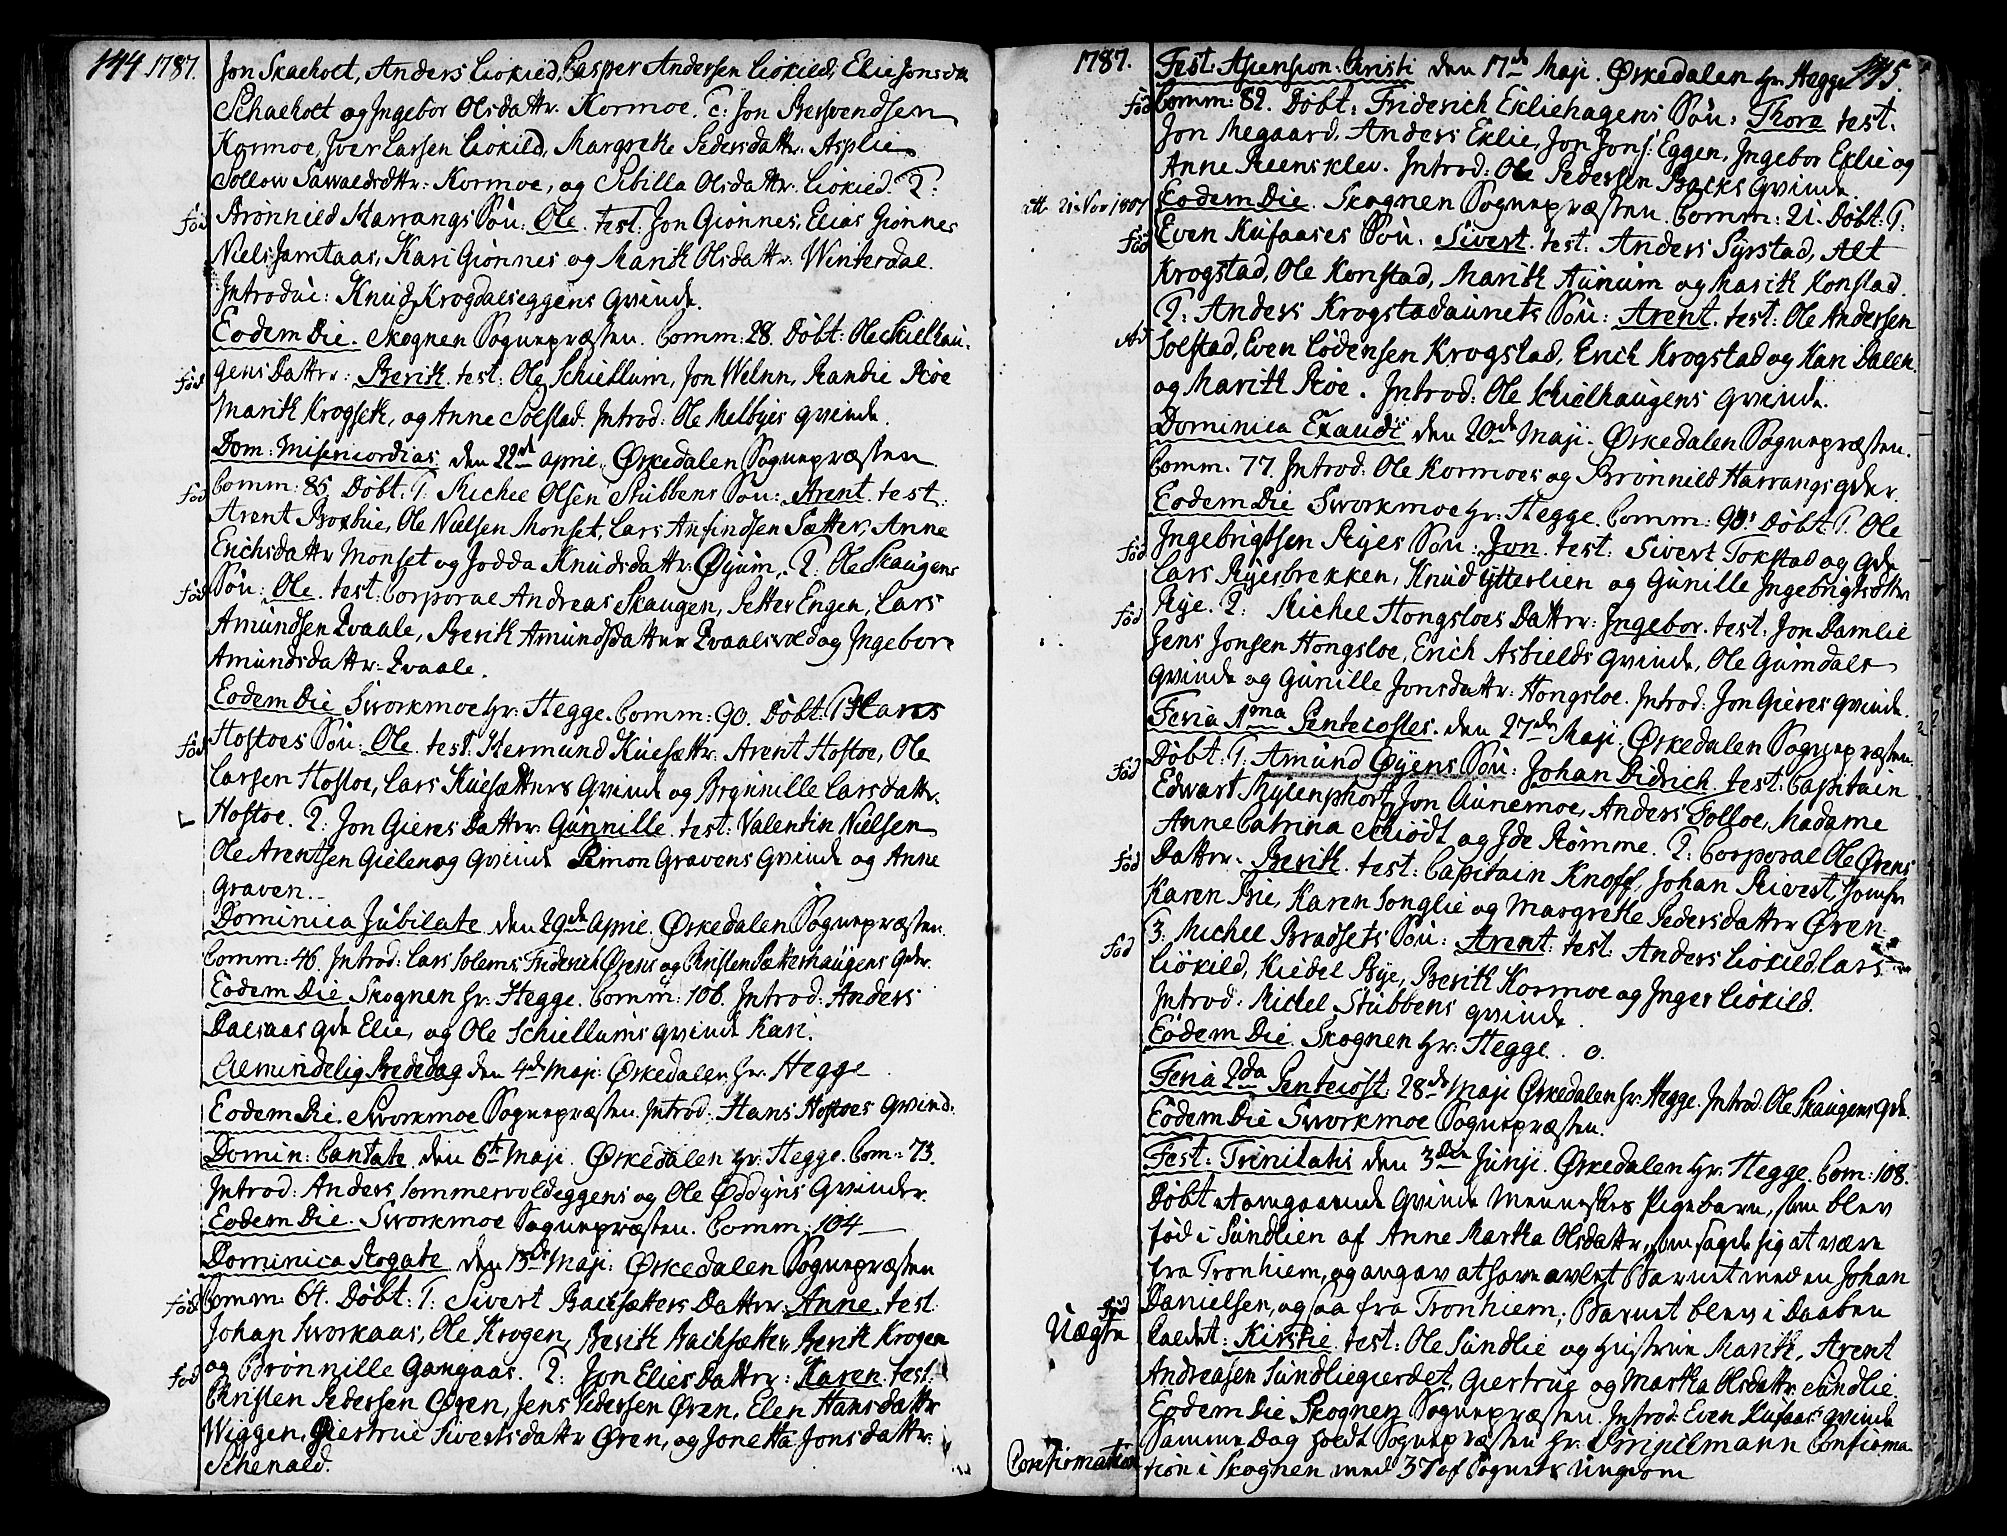 144 1787.
Jon Skaeholt, Anders Liøkied, Casper Andersen Liøkild, Elie Jonsda
Schaeholt og Ingebor Olsdattr. Kormoe. T: Jon Bersvendsen
Kormoe, Iver Larsen Liøkild, Margrethe Pedersdattr. Asplie
Sollow Sawaldsdttr: Kormoe, og Sibilla Olsdattr. Liøkied. 2:
Fød Brønnild Harrangs Søn: Ole. test: Jon Giønnes, Elias Giønnes
Niels Jamtaas, Kari Giønnes og Marith Olsdattr. Winterdal.
Introdu: Knud Krogdalseggens Qvinde.
Eodem Die. Skognen Sognepræsten. Comm: 28. Døbt: Ole Skielhau-
Fød gens Dattr: Berith. test: Ole Schiellum, Jon Welnn, Randie Roe
Marith Krogseth, og Anne Solstad. Introd: Ole Melbyes qvinde.
Dom: Misericordias den 22de April. Ørkedalen Sognepræsten.
Fød Comm: 85. Døbt: 1. Michel Olsen Stubbens Søn: Arent. test:
Arent Boxbie, Ole Nielsen Monset, Lars Anfindsen Sætter, Anne
Erichsdattr Monset og Jodda Knudsdattr: Øyum. 2: Ole Skaugens
Fød Søn: Ole. test: Corporal Andreas Skaugen, Petter Engen, Lars
Amundsen Qvaale, Berith Amundsdatter Qvaalsvold og Ingebor
Amundsdattr. Qvaale.
Eodem Die Sworkmoe hr: Hegge. Comm: 90. Døbt: 1 Hans
Fød Hostoes Søn: Ole. test: Hermund Kuesættr. Arent Hostoe, Ole
Larsen Hostoe, Lars Kuesætters Qvinde og Brynnille Larsdattr.
Hostoe. 2: Jon Gieres Dattr: Gunnille. test: Valentin Nielsen
Ole Arentsen Gielen og Qvinde Simon Gravens Qvinde og Anne
Graven.
Dominica Jubilate den 29de April. Ørkedalen Sognepræsten.
Comm: 46. Introd: Lars Solems, Friderich Ørens og Christen Sætterhaugens Qdr.
Eodem Die Skognen hr: Hegge. Comm: 106. Introd: Anders
Dalsaas Qde Elie, og Ole Schiellums qvinde Kari.
Almindelig Bededag den 4de Maji. Ørkedalen hr. Hegge
Eodem Die. Sworkmoe Sognepræsten. Introd: Hans Hostoes Qvind.
Domin: Cantate den 6te Maji. Ørkedalen hr. Hegge. Com: 73.
Introd: Anders Sommervoldeggens og Ole Oddyns Qvinder.
Eodem Die. Sworkmoe Sognepræsten. Comm: 104
Dominica Rogate den 13de Maji: Ørkedalen Sognepræsten
Fød Comm: 64. Døbt: 1: Sivert Bachsætters Dattr: Anne. test:
Johan Sworkaas, Ole Krogen, Berith Bachsætter, Berith Krogen
Fød og Brønnille Gangaas. 2: Jon Elies Dattr: Karen. test:
Christen Pedersen Øren, Jens Pedersen Øren, Elen Hansdattr
Wiggen, Giertrue Sivertsdattr Øren, og Jonetta Jonsdattr:
Schenald.
1787. 145.
Fest: Ascension: Christi den 17de Maji. Ørkedalen hr. Hegge
Fød Comm: 82. Døbt: Friderich Ekliehagens Søn: Thore test:
Jon Megaard, Anders Eklie, Jon Jons: Eggen, Ingebor Eklie og
Anne Reensklev. Introd: Ole Pedersen Backs Qvinde
att. 21 Nov 1807 Eodem Die. Skognen Sognepræsten. Comm: 21. Døbt: 1:
Fød Even Kufaases Søn: Sivert. test: Anders Syrstad, Alt
Krogstad, Ole Konstad, Marith Aunum og Marith Konstad.
2: Anders Krogstadaunets Søn: Arent. test: Ole Andersen
Solstad, Even Lodensen Krogstad, Erich Krogstad og Kari Dalen.
og Marith Roe. Introd: Ole Schielhaugens Qvinde.
Dominica Exaudi den 20de Maji. Ørkedalen Sognepræsten.
Comm. 77. Introd: Ole Kormoes og Brønnild Harrangs Qder.
Eodem Die Sworkmoe hr: Hegge. Comm: 90. Døbt: 1. Ole
Fød Ingebrigtsen Ryes Søn: Jon. test: Sivert Tokstad og Qde
Lars Ryesbrekken, Knud Ytterlien og Gunille Ingebrigtsdttr
Fød Rye. 2: Michel Hongsloes Dattr: Ingebor. test: Jon Damlie
Jens Jonsen Hongsloe, Erich Asfields Qvinde, Ole Gumdals
Qvinde og Gunille Jonsdattr. Hongsloe. Introd: Jon Gieres Qvinde.
Feria 1ma Pentecostes. den 27de Maji. Ørkedalen Sognepræsten.
Fød Døbt: 1: Amund Øyens Søn: Johan Didrich. test: Capitain
Edwart Mylenphort, Jon Aunemoe, Anders Solloe, Madame
Anne Catrina Schiødt og Ide Romme. 2: Corporal Ole Ørens
Fød Dattr. Berith. test: Capitain Knoff, Johan Rivert, Jomfr
Karen Brie, Karen Songlie og Margrethe Pedersdattr Øren
Fød 3. Michel Bradsets Søn: Arent. test: Anders Liøkild, Lars
Liøkild, Kiedel Rye, Berith Kormoe og Inger Liøkild.
Introd: Michel Stubbens qvinde.
Eodem Die. Skognen hr: Hegge. 0.
Feria 2da Pentecost: 28de Maji Ørkedalen hr. Hegge. Introd: Ole Skaugens Qde.
Eodem Die Sworkmoe Sognepræsten.
Fest: Trinitatis den 3die Junji. Ørkedalen hr. Hegge. Com: 108.
Døbt et omgaaende Qvinde Menneskes Pigebarn, som blev
fød i Sundlien af Anne Martha Olsdattr, som sagde sig at være
fra Tronhiem, og angav at have avlet Barnet med en Johan
Fød Danielsen, og saa fra Tronhiem; Barnet blev i Daaben
Uægte kaldet: Kirstie. test: Ole Sundlie og Hustrue Marith, Arent
Andreasen Sundliegierdet, Giertrue og Martha Olsdattr. Sundlie.
Eodem Die Skognen Sognepræsten. Introd: Even Kufaas qvinde
Samme Dag holdt Sognepræsten hr: Confirma-
Confirmation tion i Skognen med 37 af Sognets Ungdom